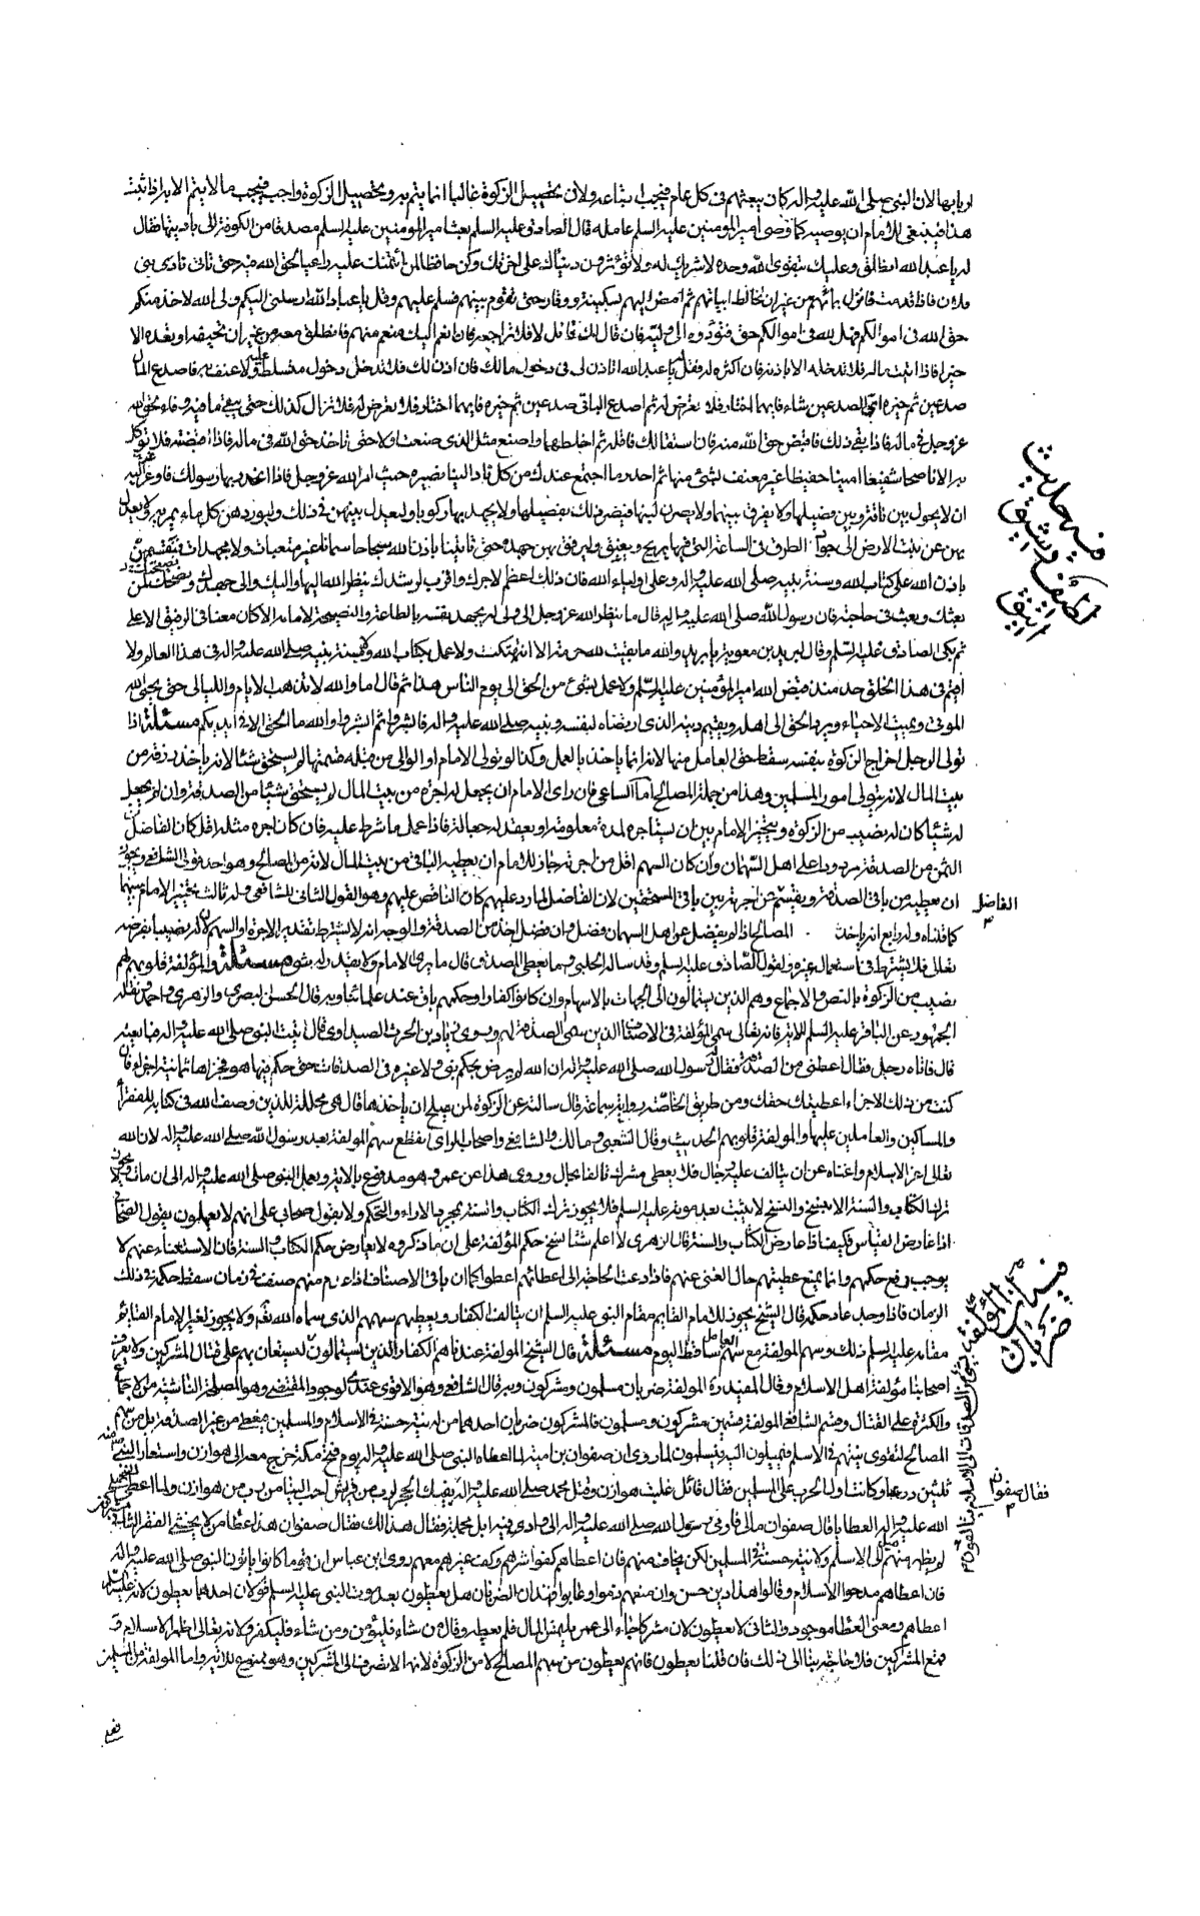 اربابها لان النبي صلى الله عليه وآله كان يبعثهم في كل عام فيجب اتباعه ولان تحصيل الزكوة غالبا انما يتم به وتحصيل الزكوة واجب فيجب ما لا يتم الا به اذا ثبت
هذا فينبغي للامام ان يوصيه كما وصى امير المؤمنين عليه السلم عامله قال الصادق عليه السلم بعث امير المؤمنين عليه السلم مصدقا من الكوفة الى باديتها فقال
له يا عبد الله انطلق وعليك بتقوى الله وحده لا شريك له ولا تؤثرن دنياك على اخرتك وكن حافظا لما ائتمنتك عليه راعيا لحق الله فيه حتى تاتي نادي بني
فلان فاذا قدمت فانزل بمائهم من غير ان تخالط ابياتهم ثم امض اليهم بسكينة ووقار حتى تقوم بينهم فسلم عليهم وقل يا عباد الله ارسلني اليكم ولي الله لاخذ منكم
حق الله في اموالكم فهل لله في اموالكم حق فتؤدوه الى وليه فان قال لك قائل لا فلا تراجعه فان انعم اليك منعم منهم فانطلق معه من غير ان تخيفه او تعده الا
خيرا فاذا اتيت ماله فلا تدخله الا باذنه فان اكثره له فقل يا عبد الله اتاذن لي في دخول مالك فان اذن لك فلا تدخل دخول متسلط عليه ولا عنف به فاصدع المال
صدعين ثم خيره اي الصدعين شاء فايهما اختار فلا تعرض له ثم اصدع الباقي صدعين ثم خيره فايهما اختار فلا تعرض له فلا تزال كذلك حتى يبقى ما فيه وفاء لحق الله
عز وجل في ماله فاذا بقي ذلك فاقبض حق الله منه فان استقالك فاقله ثم اخلطهما واصنع مثل الذي صنعت اولا حتى تاخذ حق الله في ماله فاذا قبضته فلا توكل
به الا ناصحا شفيقا امينا حفيظا غير معنف بشئ منها ثم احدر ما اجتمع عندك من كل ناد الينا نصيره حيث امر الله عز وجل فاذا انحدر بها رسولك فاوعز اليه
ان لا يحول بين ناقة وبين فصيلها ولا يفرق بينهما ولا يصرن لبنها فيضر ذلك بفصيلها ولا يجهد بها ركوبا وليعدل بينهن في ذلك وليوردهن كل ماء يمر به ولا يعدل
بهن عن نبت الارض الى جواد الطرق في الساعة التي فيها يريح ويعنق وليرفق بهن جهده حتى تاتينا باذن الله سحاحا سمانا غير متعبات ولا مجهدات فيقسمن
باذن الله على كتاب الله وسنة نبيه صلى الله عليه وآله على اولياء الله فان ذلك اعظم لاجرك واقرب لرشدك ينظر الله اليها واليك والى جهدك ونصيحتك لمن
بعثك وبعثت في حاجته فان رسول الله صلى الله عليه وآله قال ما ينظر الله عز وجل الى ولي له يجهد نفسه بالطاعة والنصيحة لامامه الا كان معنا في الرفيق الاعلى
ثم بكى الصادق عليه السلم وقال لبريد بن معوية يا بريد والله ما بقيت لله حرمة الا انتهكت ولا عمل بكتاب الله ولا سنة نبيه صلى الله عليه وآله في هذا العالم ولا
اقيم في هذا الخلق حد منذ قبض الله امير المؤمنين عليه السلم ولا عمل بشئ من الحق الى يوم الناس هذا ثم قال اما والله لا تذهب الايام والليالي حتى يحيي الله
الموتى ويميت الاحياء ويرد الحق الى اهله ويقيم دينه الذي ارتضاه لنفسه ونبيه صلى الله عليه وآله فابشروا ثم ابشروا فوالله ما الحق الا في ايديكم مسئلة اذا
تولى الرجل اخراج الزكوة بنفسه سقط حق العامل منها لانه انما ياخذ بالعمل وكذا لو تولى الامام او الوالي من قبله قسمتها لم يستحق شئا لانه ياخذ رزقه من
بيت المال لانه يتولى امور المسلمين وهذا من جملة المصالح اما الساعي فان راى الامام ان يجعل له اجرة من بيت المال لم يستحق شيئا من الصدقة وان لم يجعل
له شيئا كان له نصيب من الزكوة ويتخير الامام بين ان يستاجره لمدة معلومة او يعقد له جعالة فاذا عمل ما شرط عليه فان كان اجرة مثله اقل كان الفاضل
الثمن من الصدقة مردودا على اهل السهمان وان كان السهم اقل من اجرته جاز للامام ان يعطيه الباقي من بيت المال لانه من المصالح وهو احد قولي الشافعي ويجوز
ان يعطيه من باقي الصدقة ويقسم عن اجرته بين باقي المستحقين لان الفاضل لما رد عليهم كان الناقص عليهم وهو القول الثاني للشافعي وله ثالث يتخير الامام بينهما
كما قلناه وله رابع انه ياخذ المصالح اذا لم يفضل عن اهل السهمان فضل وان فضل اخذ من الصدقة والوجه انه لا يشترط تقدير الاجرة او السهم لان له نصيبا بفرضه
تعالى فلا يشترط في استعمال غيره ولقول الصادق عليه السلم وقد ساله الحلبي وما يعطى المصدق قال ما يرى الامام ولا يقدر له شئ مسئلة والمؤلفة قلوبهم لهم
نصيب من الزكوة بالنص والاجماع وهم الذين يستمالون الى الجهاد بالاسهام وان كانوا كفارا وحكمهم باق عند علمائنا وبه قال الحسن البصري والزهري واحمد ونقله
الجمهور عن الباقر عليه السلم للاية فانه تعالى سمى المؤلفة في الاصناف الذين سمى الصدقة لهم وروى زياد بن الحرث الصدايي قال اتيت النبي صلى الله عليه وآله فبايعته
قال فاتاه رجل فقال اعطني من الصدقة فقال رسول الله صلى الله عليه وآله ان الله لم يرض بحكم نبي ولا غيره في الصدقات حتى حكم فيها هو فجزاها ثمانية اجزاء فان
كنت من تلك الاجزاء اعطيتك حقك ومن طريق الخاصة رواية سماعة قال سالته عن الزكوة لمن يصلح ان ياخذها قال هي محللة للذين وصف الله في كتابه للفقراء
والمساكين والعاملين عليها والمؤلفة قلوبهم الحديث وقال الشعبي ومالك والشافعي واصحاب الراي انقطع سهم المؤلفة بعد رسول الله صلى الله عليه وآله لان الله
تعالى اعز الاسلام واغناه عن ان يتالف عليه رجال فلا يعطى مشرك تالفا بحال وروى هذا عن عمر وهو مدفوع بالاية وبعمل النبي صلى الله عليه وآله الى ان مات ولا يجوز
ترك الكتاب والسنة الا بنسخ والنسخ لا يثبت بعد موته عليه السلم فلا يجوز ترك الكتاب والسنة بمجرد الاراء والتحكم ولا بقول صحابي على انهم لا يعملون بقول الصحابي
اذا عارض القياس فكيف اذا عارض الكتاب والسنة قال الزهري لا اعلم شئا نسخ حكم المؤلفة على ان ما ذكروه لا يعارض حكم الكتاب والسنة فان الاستغناء عنهم لا
يوجب رفع حكمهم وانما يمنع عطيتهم حال الغنى عنهم فاذا دعت الحاجة الى اعطائهم اعطوا كما ان باقي الاصناف اذا عدم منهم صنف في زمان سقط حكمه في ذلك
الزمان فاذا وجد عاد حكمه قال الشيخ يجوز للامام القايم مقام النبي عليه السلم ان يتالف الكفار ويعطيهم سهمهم الذي سماه الله تعالى ولا يجوز لغير الامام القائم
مقامه عليه السلم ذلك وسهم المؤلفة مع سهم العامل ساقط اليوم مسئلة قال الشيخ المؤلفة عندنا هم الكفار الذين يستمالون ليستعان بهم على قتال المشركين ولا يعرف
اصحابنا مؤلفة اهل الاسلام وقال المفيد ره المؤلفة ضربان مسلمون ومشركون وبه قال الشافعي وهو الاقوى عندي لوجود المقتضي وهو المصلحة الناشئة من الاجتماع
والكثرة على القتال وقسم الشافعي المؤلفة قسمين مشركون ومسلمون فالمشركون ضربان احدهما من له نية حسنة في الاسلام والمسلمين فيعطى من غير الصدقة بل من سهم
المصالح لتقوى نيتهم في الاسلم فيميلون اليه فيسلمون لما روي ان صفوان بن امية لما اعطاه النبي صلى الله عليه وآله يوم فتح مكة خرج معه الى هوازن واستعار النبي منه
ثلثين درعا وكانت اول الحرب على المسلمين فقال قائل غلبت هوازن وقتل محمد صلى الله عليه وآله بفيك الحجر لرب من قريش احب الينا من رب من هوازن ولما اعطى النبي صلى
الله عليه وآله العطايا قال صفوان مالي فاومى رسول الله صلى الله عليه وآله الى وادي فيه ابل محملة فقال هذا لك فقال صفوان هذا عطاء من لا يخشى الفقر الثاني
لم يظهر منهم ميل الى الاسلم ولا نية حسنة في المسلمين لكن يخاف منهم فان اعطاهم كفوا شرهم وكف غيرهم معهم روى ابن عباس ان قوما كانوا ياتون النبي صلى الله عليه وآله
فان اعطاهم مدحوا الاسلام وقالوا هذا دين حسن وان منعهم ذموا وعابوا فهذان الضربان هل يعطون بعد موت النبي عليه السلم قولان احدهما يعطون لانه عليه السلم
اعطاهم ومعنى العطاء موجود والثاني لا يعطون لان مشركا جاء الى عمر يلتمس المال فلم يعطه وقال من شاء فليؤمن ومن شاء فليكفر ولانه تعالى اظهر الاسلام و
قمع المشركين فلا حاجة بنا الى ذلك فان قلنا يعطون فانهم يعطون من سهم المصالح لا من الزكوة لانها لا تصرف الى المشركين وهو ممنوع للاية واما المؤلفة من المسلمين
فيه حديث
لطيف رشيق
انيق
الفاضل
فقال صفوان